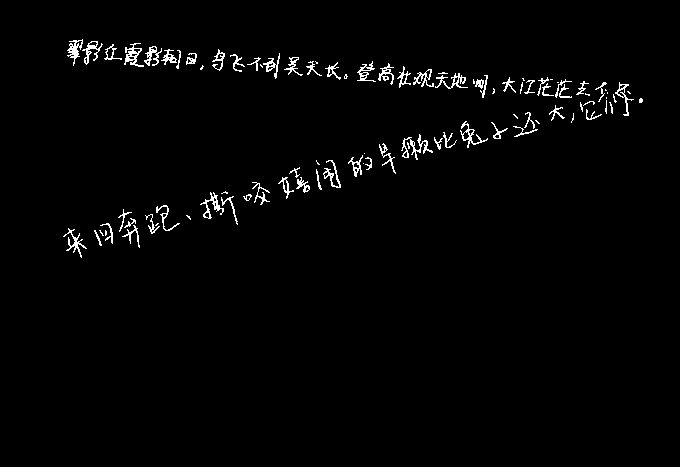 翠影红霞影朝日，鸟飞不到吴天长。登高壮观天地间，大江茫茫去不
来回奔跑、撕咬嬉闹的旱獭比兔子还大，它们